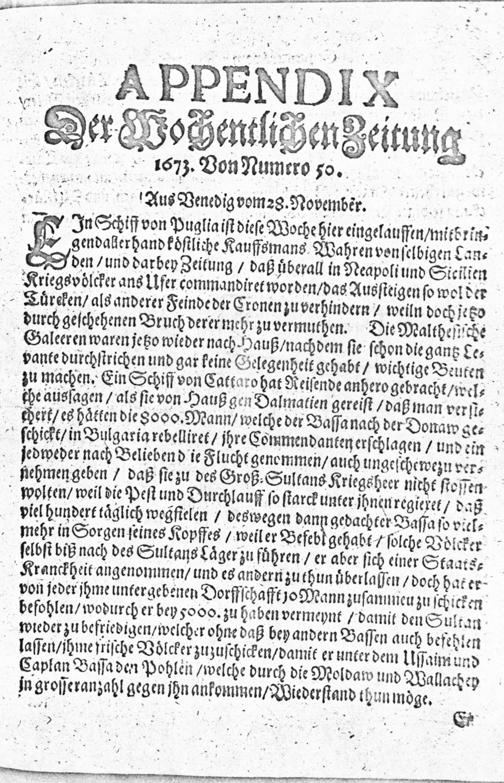 APPENDIX
Der Wochentlichen Zeitung
1673. Von Numero 50.
Aus Venedig vom 28. November.
EIn Schiff von Puglia ist diese Woche hier eingelauffen/mitbrin-
gend allerhand köstliche Kauffmans Wahren von selbigen Lan-
den / und darbey Zeitung / daß überall in Neapoli und Sicilien
Kriegsvölcker ans Ufer commandiret worden/das Aussteigen so wol der
Türcken/ als anderer Feinde der Cronen zu verhindern / weiln doch jetzo
durch geschehenen Bruch derer mehr zu vermuthen. Die Malthesische
Galeeren waren jetzo wieder nach Hauß/nachdem sie schon die gantz Le-
vante durchstrichen und gar keine Gelegenheit gehabt / wichtige Beuten
zu machen. Ein Schiff von Cattaro hat Reisende anhero gebracht/wel-
che aussagen / als sie von Hauß gen Dalmatien gereist/ daß man versi-
chert/ es hätten die 8000. Mann/ welche der Bassa nach der Donaw ge-
schickt/ in Bulgaria rebelliret / ihre Commendanten erschlagen / und ein
jedweder nach Beliebend ie Flucht genommen/ auch ungeschewez u ver-
nehmen geben / daß sie zu des Groß-Sultans Kriegsheer nicht stossen
wolten/ weil die Pest und Durchlauff so starck unter jhnen regieret / daß
viel hundert täglich wegfielen / deswegen dann gedachter Bassa so viel-
mehr in Sorgen seines Kopffes / weil er Befehl gehabt / solche Völcker
selbst biß nach des Sultans Läger zu führen / er aber sich einer Staats-
Kranckheit angenommen/ und es andern zu thun überlassen / doch hat er
von jeder ihme untergebenen Dorffschafft 10 Mann zusammen zu schicken
befohlen / wodurch er bey 5000. zu haben vermeynt / damit den Sultan
wieder zu befriedigen/welcher ohne daß bey andern Bassen auch befehlen
lassen/ihme frische Völcker zuzuschicken/damit er unter dem Ussaim und
Caplan Bassa den Pohlen /welche durch die Moldaw und Wallachey
in grosser anzahl gegen jhn ankommen/ Wiederstand thun möge.